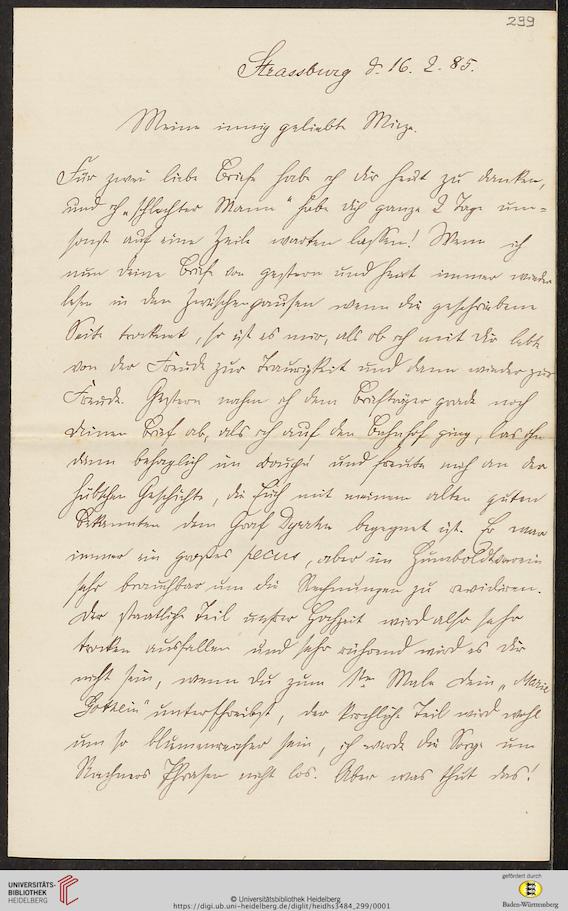 299
Strassburg d. 16. 2. 85.
Meine innig geliebte Mieze.
Für zwei liebe Briefe habe ich dir heut zu danken,
und ich „schlechter Mann" habe dich ganze 2 Tage um-
sonst auf eine Zeile warten lassen! Wenn ich
nun deine Briefe von gestern und heut immer wieder
lese in den Zwischenpausen wenn die geschriebene
Seite trocknet, so ist es mir, als ob ich mit dir lebte
von der Freude zur Traurigkeit und dann wieder zur
Freude. Gestern nahm ich dem Briefträger grade noch
deinen Brief ab, als ich auf den Bahnhof ging, las ihn
dann behaglich im Coupé und freute mich an der
hübschen Geschichte, die Euch mit meinem alten guten
Bekannten dem Graf begegnet ist. Er war
immer ein großes pecus, aber im Humboldtverein
sehr brauchbar um die Rechnungen zu revidiren.
Der staatliche Teil unsrer Hochzeit wird also sehr
trocken ausfallen und sehr rührend wird es dir
nicht sein, wenn du zum 1ten Male dein „Marie
Gothein" unterschreibst, der kirchliche Teil wird wohl
um so blumenreicher sein, ich werde die Sorge um
Phrasen nicht los. Aber was thut das!
UNIVERSITÄTS-
BIBLIOTHEK
HEIDELBERG
© Universitätsbibliothek Heidelberg
https://digi.ub.uni-heidelberg.de/diglit/heidhs3484_299/0001
gefördert durch
Baden-Württemberg